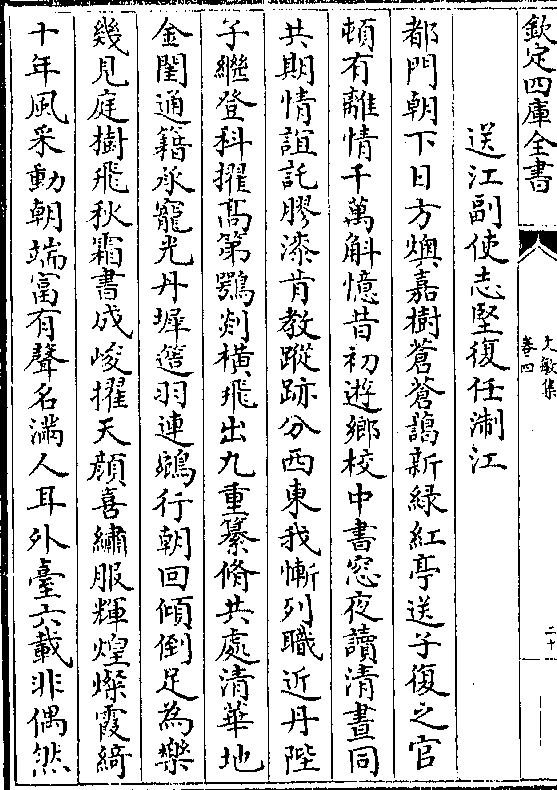 欽定四庫全書
文敏集
卷四
二十
送江副使志堅復任淛江
都門朝下日方燠嘉樹蒼蒼藹新緑紅亭送子復之官
頓有離情千萬斛憶昔初遊鄉校中書窓夜讀清晝同
共期情誼託膠漆肯教蹤跡分西東我慚列職近丹陛
子繼登科擢髙第鶚剡橫飛出九重纂脩共處清華地
金閨通籍承寵光丹墀簉羽連鵷行朝回傾倒足為樂
幾見庭樹飛秋霜書成峻擢天顔喜繡服輝煌燦霞綺
十年風采動朝端富有聲名滿人耳外臺六載非偶然